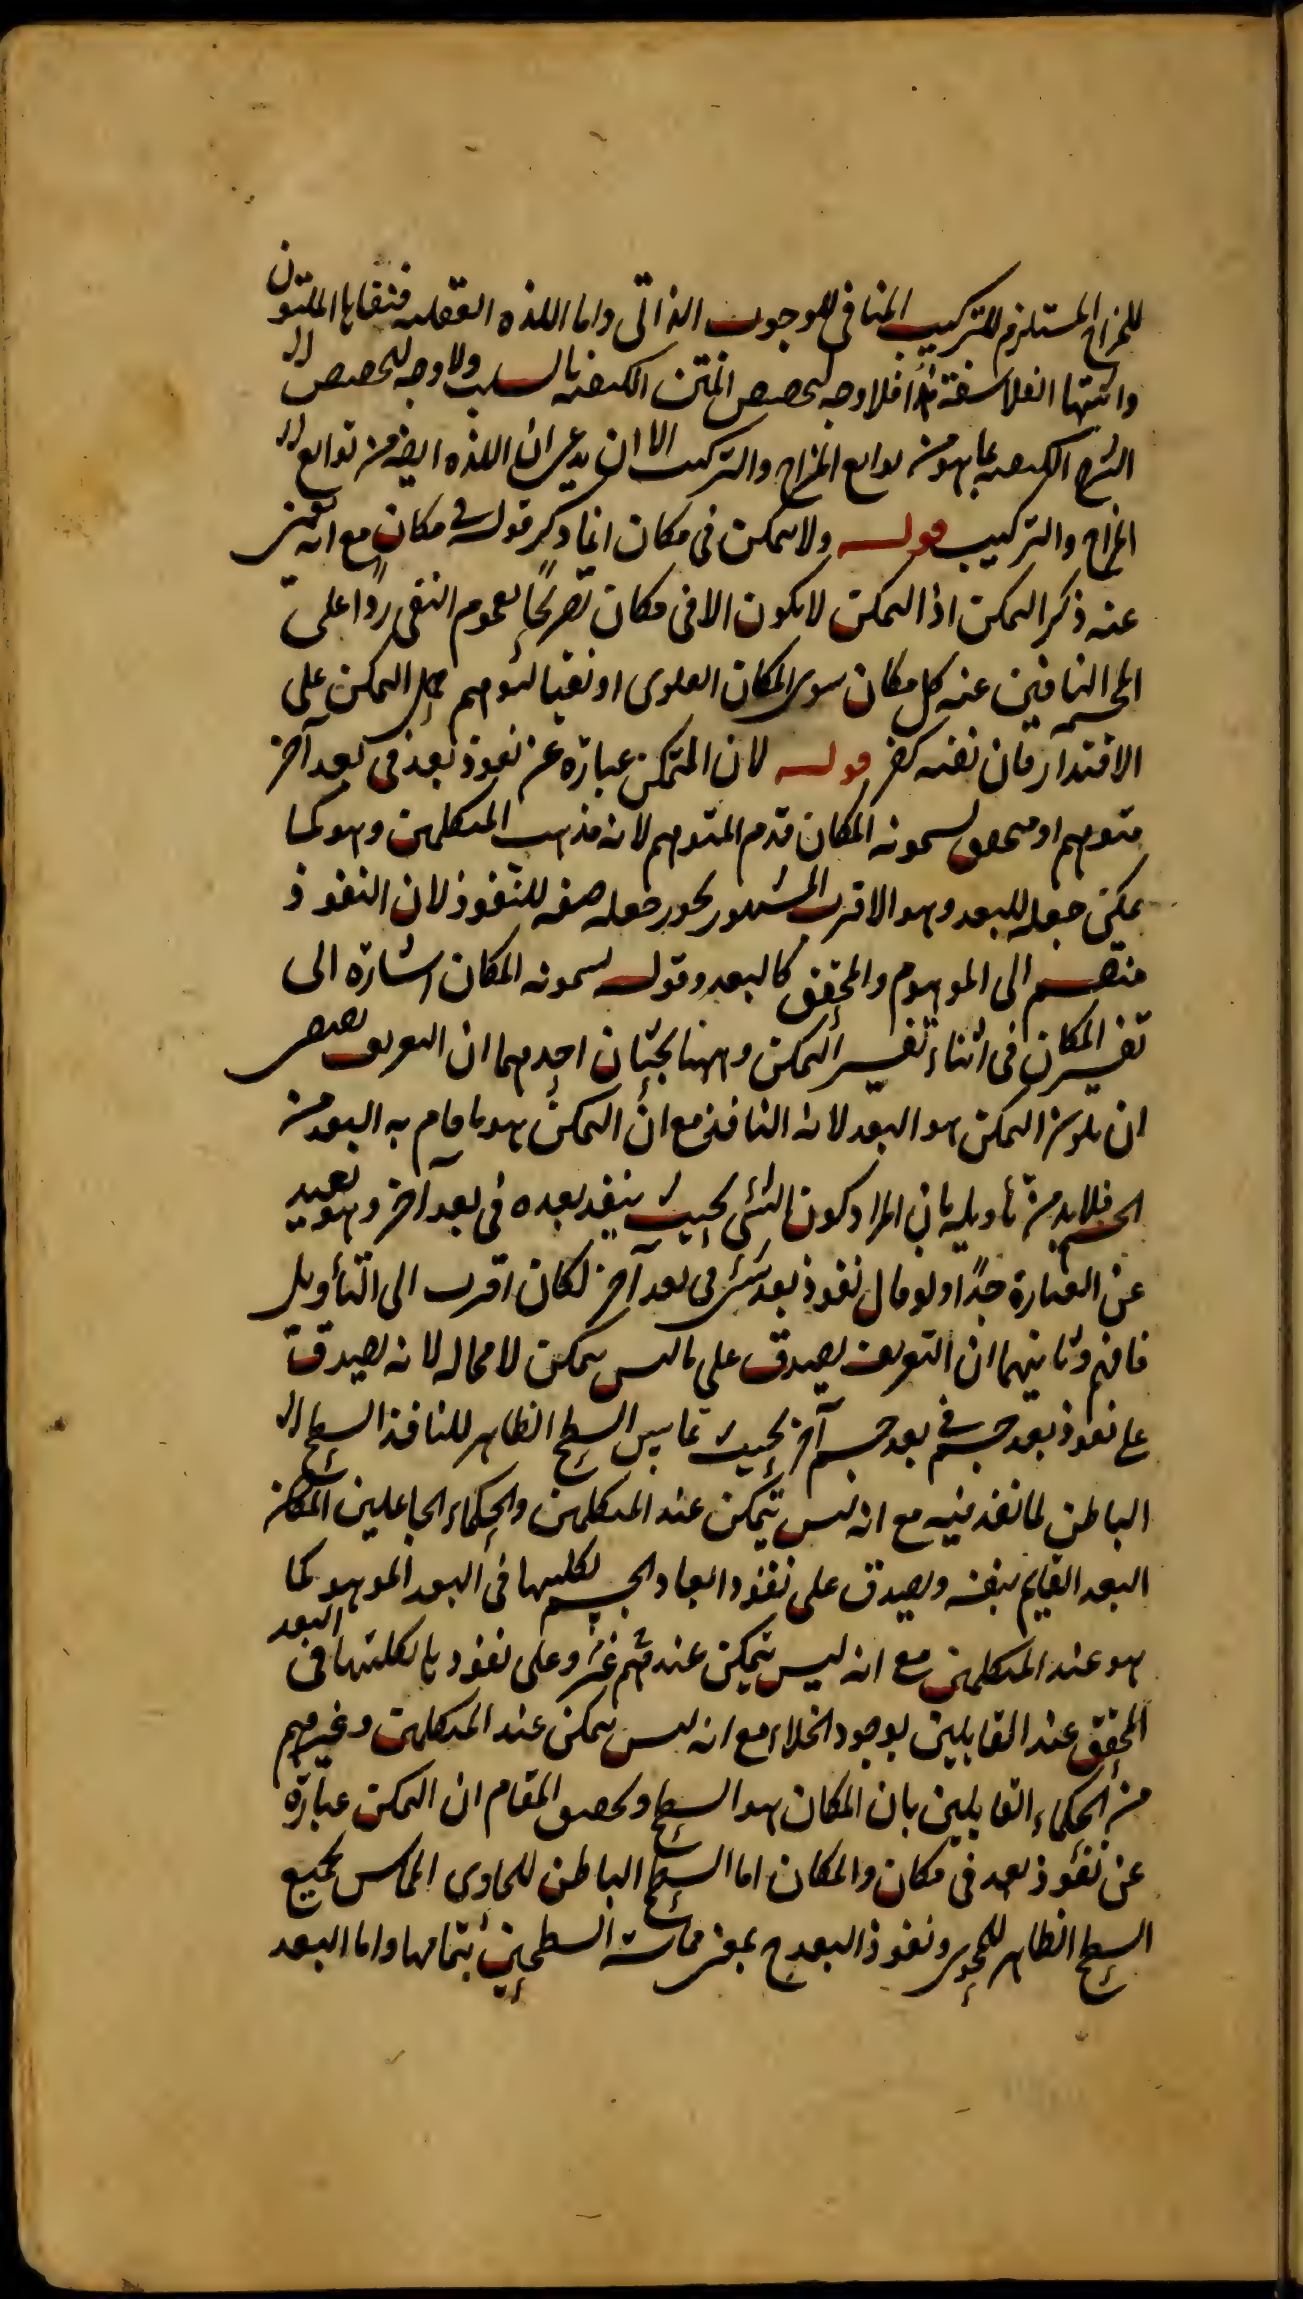 للمزاج المستلزم للتركيب المنافى للوجوب الذاتى واما اللذه العقليه فنفاها المليون
واثبتها الفلاسفة فلا وجه لتخصيص المتن الكيفيه بالسلب ولا وجه لتخصيص
الشرح الكيفيه بما هو من توابع المزاج والتركيب الا ان يدعى ان اللذه ايضا من توابع
المزاج والتركيب قوله ولا يتمكن فى مكان انما ذكر قوله فى مكان مع انه
عنه ذكر التمكن اذ التمكن لا يكون الا فى مكان تصريحًا بعموم النفى ردًا على
النافين عنه كل مكان سوى المكان العلوى او نفيا لتوهم حمل التمكن على
الاقتدار فان نفيه كفر قوله لان التمكن عبارة عن نفوذ بعد فى بعد آخر
متوهم او متحقق يسمونه المكان قدم المتوهم لانه مذهب المتكلمين وهو كما
يمكن جعله للبعد وهو الاقرب المشهور يجوز جعله صفه للنفوذ لان النفوذ
منقسم الى الموهوم والمحقق كالبعد وقوله يسمونه المكان اشارة الى
تفسير المكان فى اثناء تفسير التمكن وههنا بحثان احدهما ان التعريف يقتضى
ان يكون التمكن هو البعد لانه النافذ مع ان التمكن هو ما قام به البعد من
الجسم فلا بد من تأويله بان المراد كون الشئ بحيث ينفذ بعده فى بعد آخر وهو بعيد
عن العبارة جدًا ولو قال نفوذ بعد شئ فى بعد آخر لكان اقرب الى التأويل
فافهم وثانيهما ان التعريف يصدق على ما ليس بتمكن لا محاله لانه يصدق
على نفوذ بعد جسم فى بعد جسم آخر بحيث تماس السطح الظاهر للنافذ السطح
الباطن لما نفذ فيه مع انه ليس بتمكن عند المتكلمين والحكماء الجاعلين المكان
البعد القايم بنفسه ويصدق على نفوذ ابعاد الجسم بكليتها فى البعد الموهوم كما
هو عند المتكلمين مع انه ليس بتمكن عند غيرهم وعلى نفوذها بكليتها فى البعد
المحقق عند القايلين بوجود الخلاء مع انه ليس بتمكن عند المتكلمين وغيرهم
من الحكماء القايلين بان المكان هو السطح وتحقيق المقام ان التمكن عبارة
عن نفوذ بعد فى مكان والمكان اما السطح الباطن للحاوى المماس لجميع
السطح الظاهر للمحوى ونفوذ البعد ح بمعنى مماسة السطحين بتمامها واما البعد